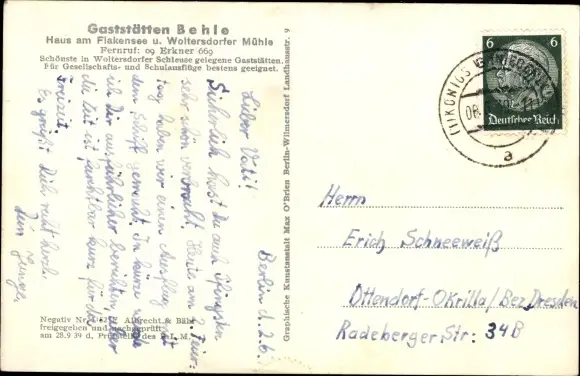 Gaststätten Behle
Haus am Flakensee u. Woltersdorfer Mühle
Fernruf: 09 Erkner 669
Schönste in Woltersdorfer Schleuse gelegene Gaststätten.
Für Gesellschafts- und Schulausflüge bestens geeignet.
Berlin d. 2.6.
Lieber Vati!
Sicherlich hast du auch Pfingsten
sehr schön verbracht. Heute am 2. Feier-
tag haben wir einen Ausflug mit
dem Schiff gemacht. In kürze werde
ich Dir ausführlicher berichten, aber
die Zeit ist furchtbar kurz für die
Freizeit.
Es grüßt Dich recht herzl.
Dein
Negativ Nr. Albrecht & Bähr
freigegeben und nachgeprüft
am 28.9 39 d, Prüfstelle des R.L.M.
Graphische Kunstanstalt Max O'Brien Berlin-Wilmersdorf Landhausstr. 9
6 6
Deutsches Reich
KÖNIGS WUSTERHAUSEN
a
Herrn
Erich Schneeweiß
Ottendorf-Okrilla/Bez Dresden
Radeberger Str: 34B